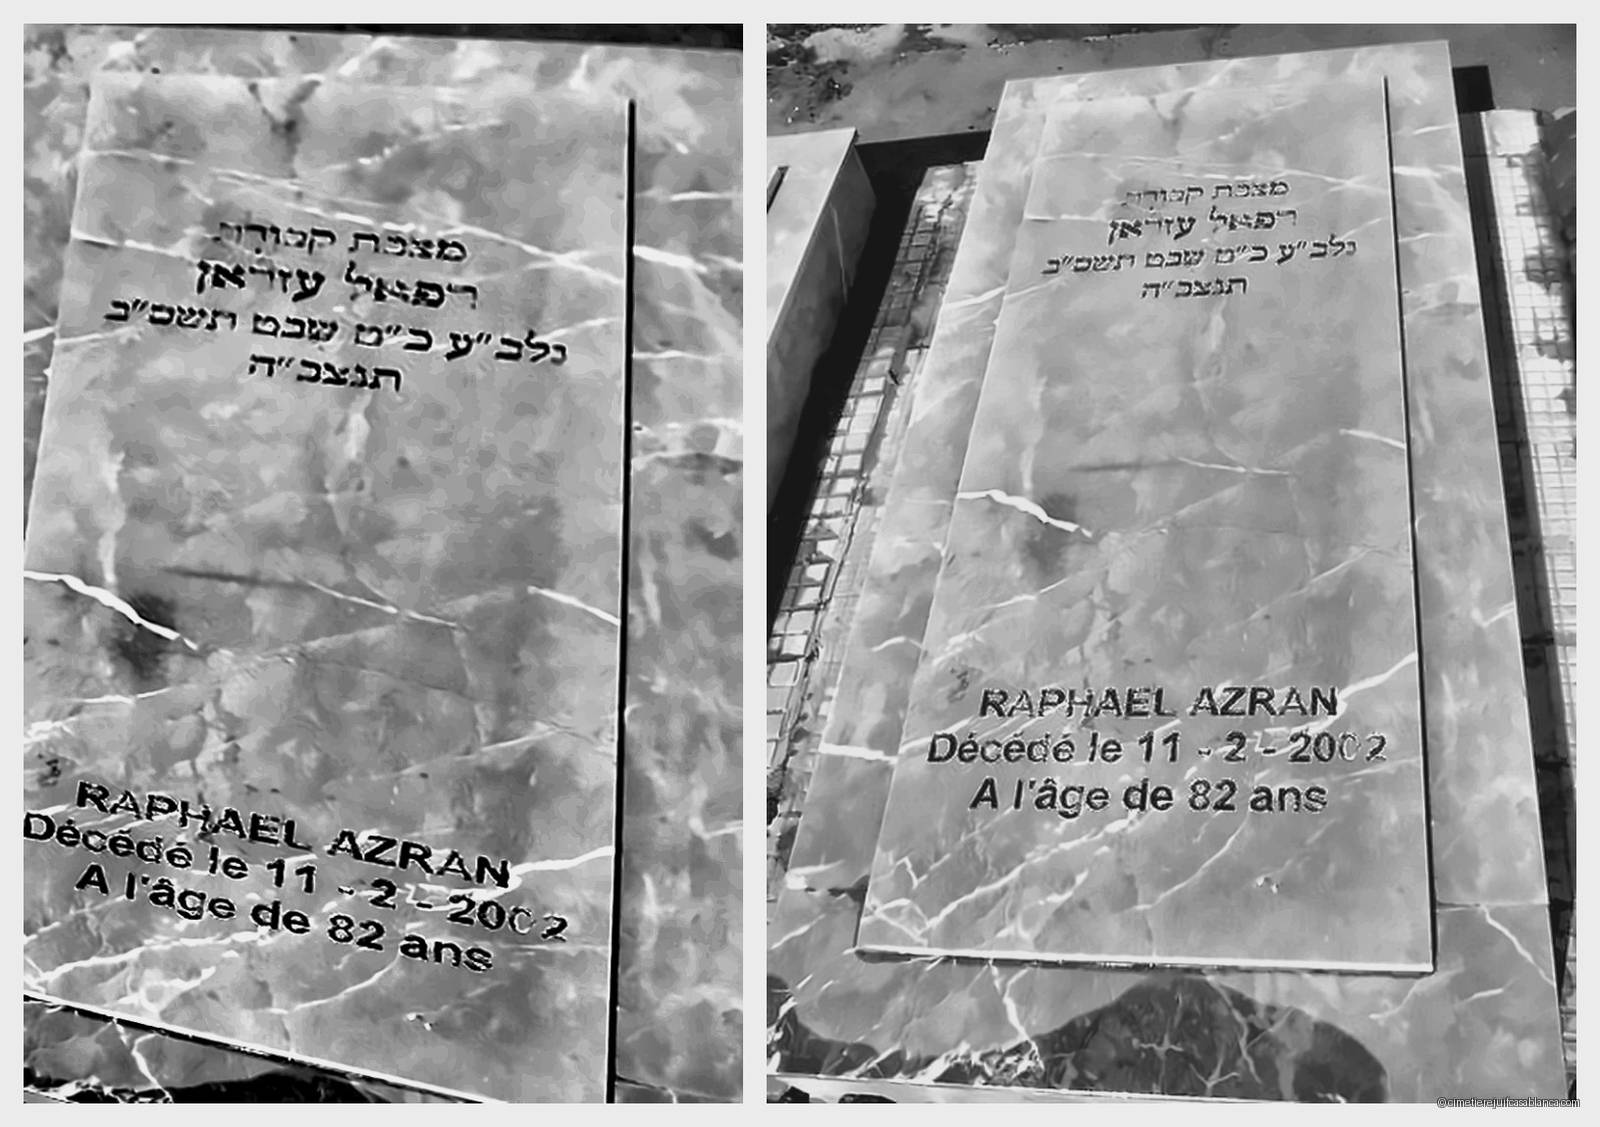 מצבת קבורת
רפאל עזראן
נלב״ע כ״ט שבט תשס״ב
תנצב״ה
RAPHAEL AZRAN
Décédé le 11 - 2 - 2002
A l'âge de 82 ans
מצבת קבורת
רפאל עזראן
נלב״ע כ״ט שבט תשס״ב
תנצב״ה
RAPHAEL AZRAN
Décédé le 11 - 2 - 2002
A l'âge de 82 ans
©cimetierejuifcasablanca.com